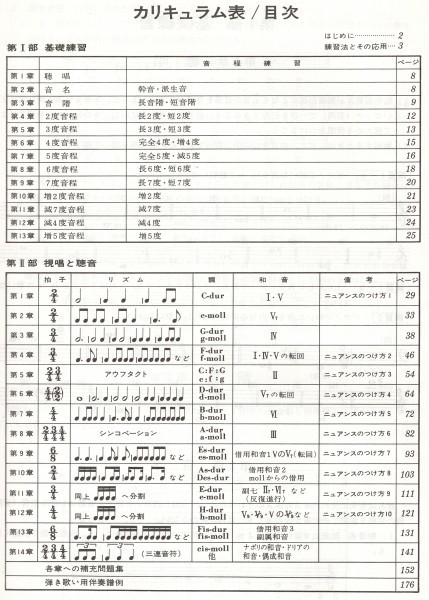 カリキュラム表/目次
はじめに………………2
練習法とその応用…3
第Ⅰ部 基礎練習
音程練習 ページ
第1章 聴唱 8
第2章 音名 幹音・派生音 8
第3章 音階 長音階・短音階 9
第4章 2度音程 長2度・短2度 12
第5章 3度音程 長3度・短3度 13
第6章 4度音程 完全4度・増4度 15
第7章 5度音程 完全5度・減5度 16
第8章 6度音程 長6度・短6度 18
第9章 7度音程 長7度・短7度 20
第10章 増2度音程 増2度 21
第11章 減7度音程 減7度 23
第12章 減4度音程 減4度 24
第13章 増5度音程 増5度 25
第Ⅱ部 視唱と聴音
拍子 リズム 調 和音 備考 ページ
第1章 2/4 C-dur Ⅰ・Ⅴ ニュアンスのつけ方1 29
第2章 2/4 c-moll Ⅴ₇ ニュアンスのつけ方 33
第3章 3/4 G-dur g-moll Ⅳ 38
第4章 3/4 など F-dur f-moll Ⅰ・Ⅳ・Ⅴの転回 ニュアンスのつけ方2 46
第5章 2/4 3/4 アウフタクト C:F:G c:f:g Ⅱ ニュアンスのつけ方3 54
第6章 D-dur d-moll Ⅴ₇の転回 ニュアンスのつけ方4 64
第7章 4/4 B-dur b-moll Ⅵ ニュアンスのつけ方5 72
第8章 2/4 3/4 4/4 シンコペーション A-dur a-moll Ⅲ ニュアンスのつけ方6 82
第9章 6/8 など Es-dur es-moll 借用和音1 Ⅴの Ⅴ₇(転回) ニュアンスのつけ方7 93
第10章 2/4 など As-dur Des-dur 借用和音2 mollからの借用 ニュアンスのつけ方8 103
第11章 3/4 同上 へ分割 E-dur e-moll 副七 Ⅱ₇・Ⅵ₇ など (反復進行) ニュアンスのつけ方9 111
第12章 4/4 同上 へ分割 H-dur h-moll など ニュアンスのつけ方10 121
第13章 6/8 など Fis-dur fis-moll 借用和音3 副属和音 131
第14章 2/4 3/4 4/4 (三連音符) cis-moll 他 ナポリの和音・ドリアの和音・偶成和音 141
各章への補充問題集 152
弾き歌い用伴奏譜例 176